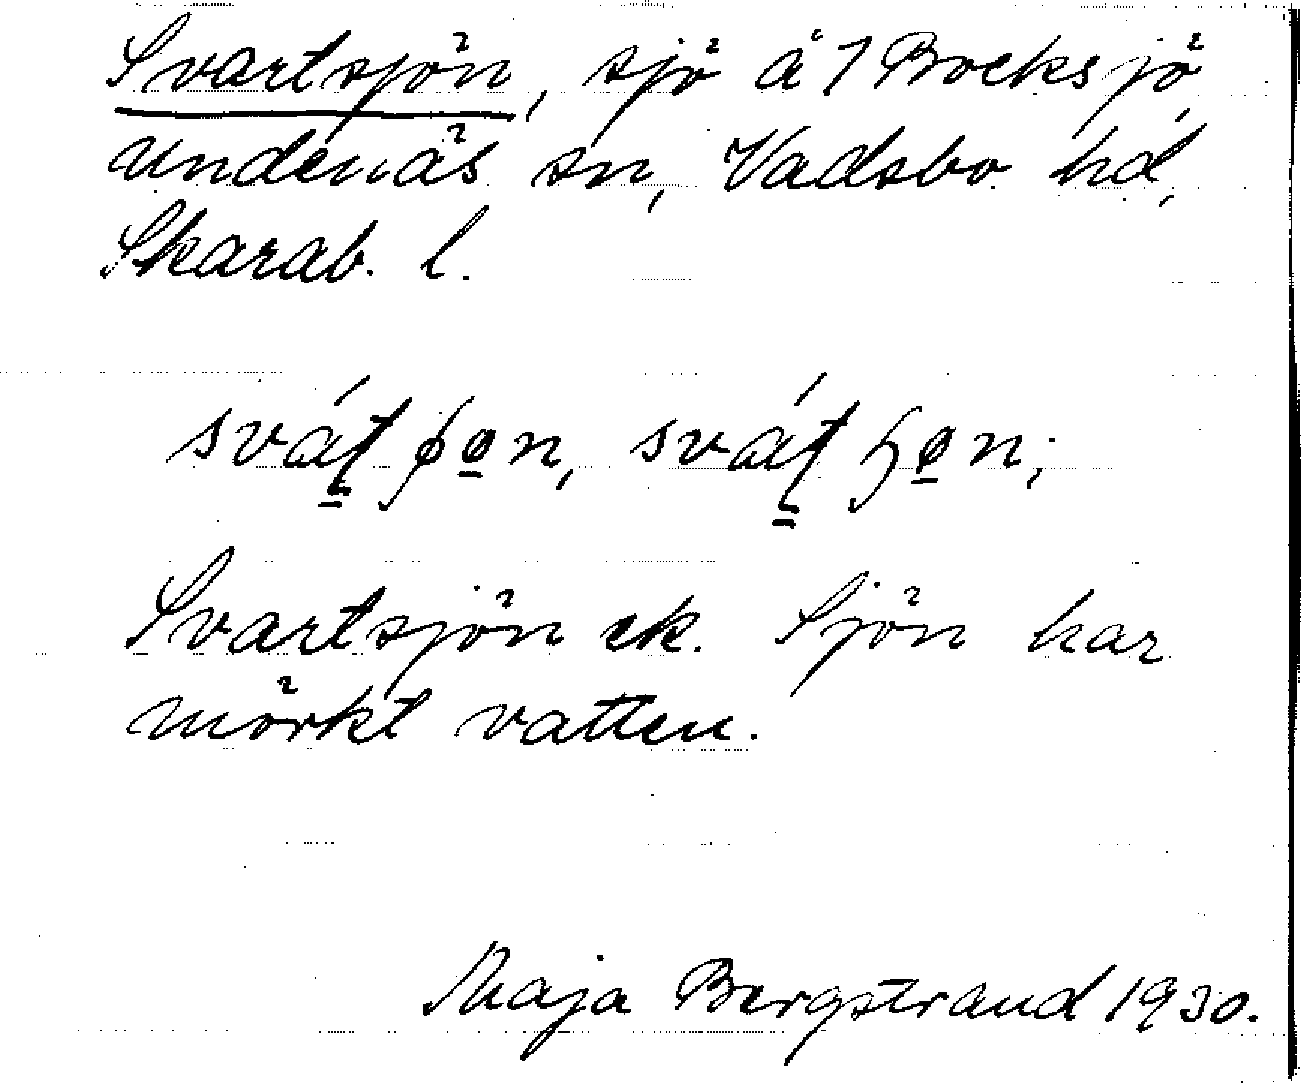 Svartsjön, sjö å 1 Bocksjö,
Undenäs sn, Vadsbo hd,
Skarab. l.
Svartsjön ek. Sjön har
mörkt vatten.
Maja Bergstrand 1930.